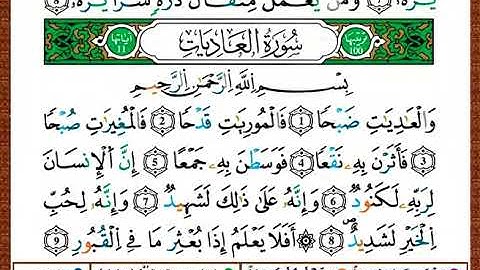 يَرَهُۥ ۝٧ وَمَن يَعْمَلْ مِثْقَالَ ذَرَّةٍ شَرًّا يَرَهُۥ ۝٨
ترتيبها 100 سُورَةُ الْعَادِيَاتِ آياتها 11
بِسْمِ اللَّهِ الرَّحْمَٰنِ الرَّحِيمِ
وَالْعَادِيَاتِ ضَبْحًا ۝١ فَالْمُورِيَاتِ قَدْحًا ۝٢ فَالْمُغِيرَاتِ صُبْحًا
۝٣ فَأَثَرْنَ بِهِۦ نَقْعًا ۝٤ فَوَسَطْنَ بِهِۦ جَمْعًا ۝٥ إِنَّ الْإِنسَانَ
لِرَبِّهِۦ لَكَنُودٌ ۝٦ وَإِنَّهُۥ عَلَىٰ ذَٰلِكَ لَشَهِيدٌ ۝٧ وَإِنَّهُۥ لِحُبِّ
الْخَيْرِ لَشَدِيدٌ ۝٨ ۞ أَفَلَا يَعْلَمُ إِذَا بُعْثِرَ مَا فِي الْقُبُورِ ۝٩